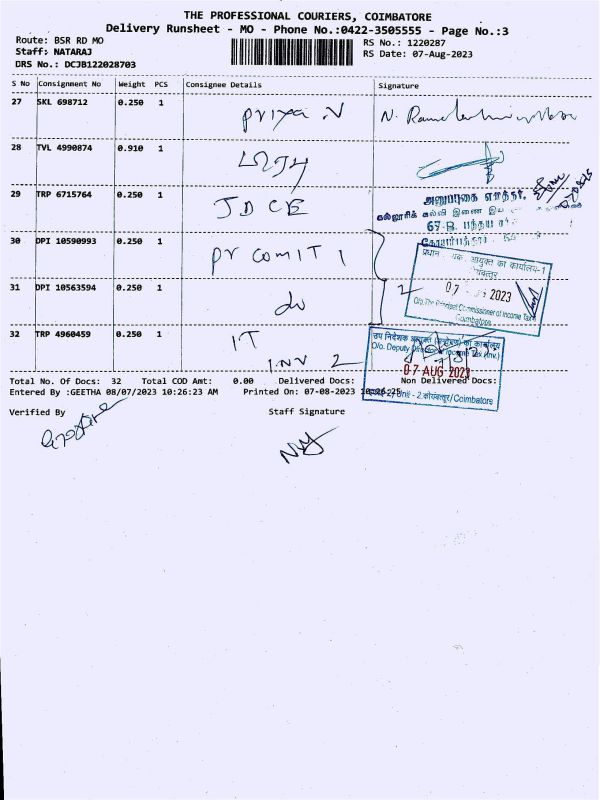 THE PROFESSIONAL COURIERS, COIMBATORE
Delivery Runsheet - MO - Phone No.:0422-3505555 - Page No.:3
Route: BSR RD MO
RS No.: 1220287
Staff: NATARAJ
RS Date: 07-Aug-2023
DRS No.: DCJB122028703
S No Consignment No Weight PCS Consignee Details Signature
27 SKL 698712 0.250 1 Priya N
28 TVL 4990874 0.910 1
29 TRP 6715764 0.250 1 JDCE
அனுப்புகை எழுத்தர்,
கல்லூரிக் கல்வி இணை
30 DPI 10590993 0.250 1 Pr comit 1
का कार्यालय-1
07 2023
O/o. The Principal Commissioner of Income Tax
Coimbatore
31 DPI 10563594 0.250 1 do 2
32 TRP 4960459 0.250 1 IT
INV 2
उप निदेशक आयकर का कार्यालय
O/o. Deputy Director of Income Tax (Inv.)
07 AUG 2023
Unit - 2, कोयंबत्तूर/Coimbatore
Total No. Of Docs: 32 Total COD Amt: 0.00 Delivered Docs: Non Delivered Docs:
Entered By :GEETHA 08/07/2023 10:26:23 AM Printed On: 07-08-2023
Verified By Staff Signature